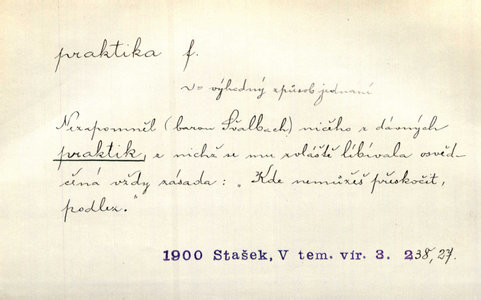 praktika f.
v= výhodný způsob jednaní
Nezapomněl (baron Švalbach) ničeho z dávných
praktik, z nichž se mu zvláště líbívala osvěd-
čená vždy zásada: „Kde nemůžeš přeskočit,
podlez."
1900 Stašek, V tem. vír. 3. 238,27.